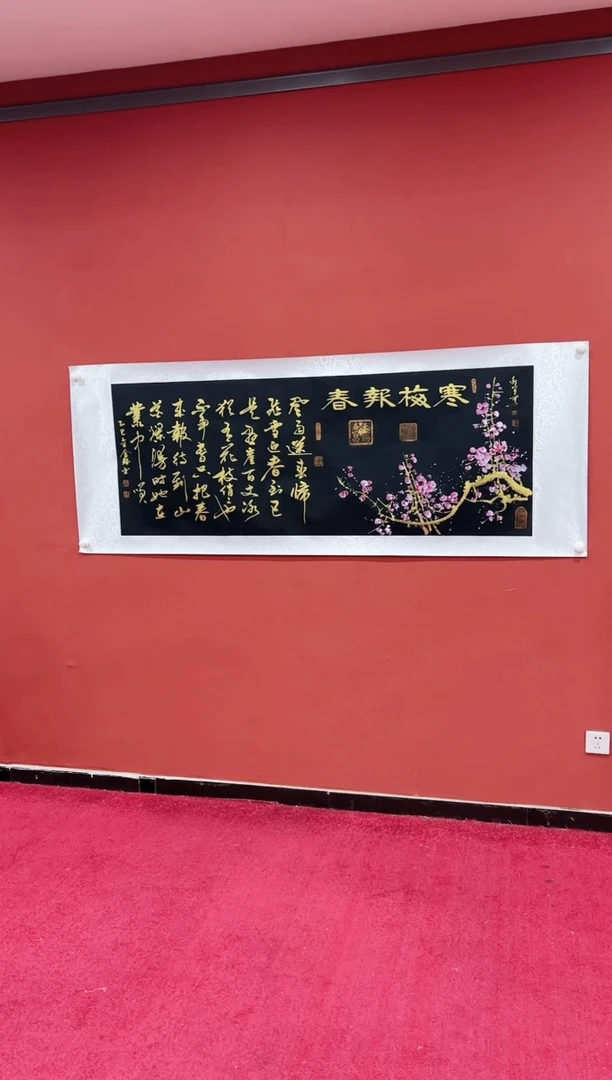 寒梅報春
風雨送春歸
飛雪迎春到已
是懸崖百丈冰
猶有花枝俏也
不爭春只把春
來報待到山
花爛漫時她在
叢中笑